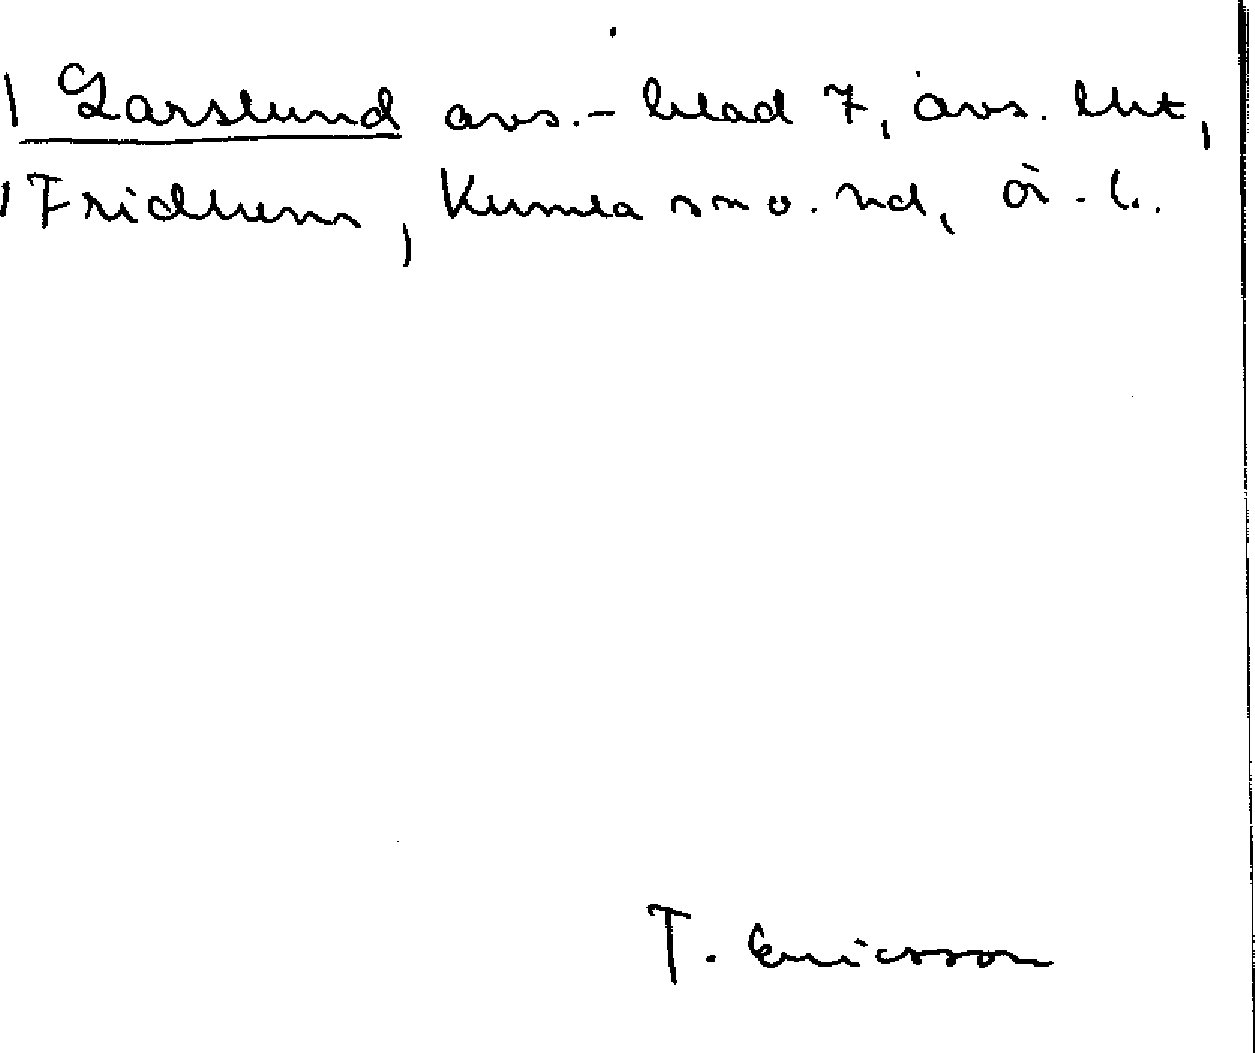 Larslund avs.- blad 7, avs. lht,
Fridhem, Kumla sn o. hd, ör. l.
T. Ericsson